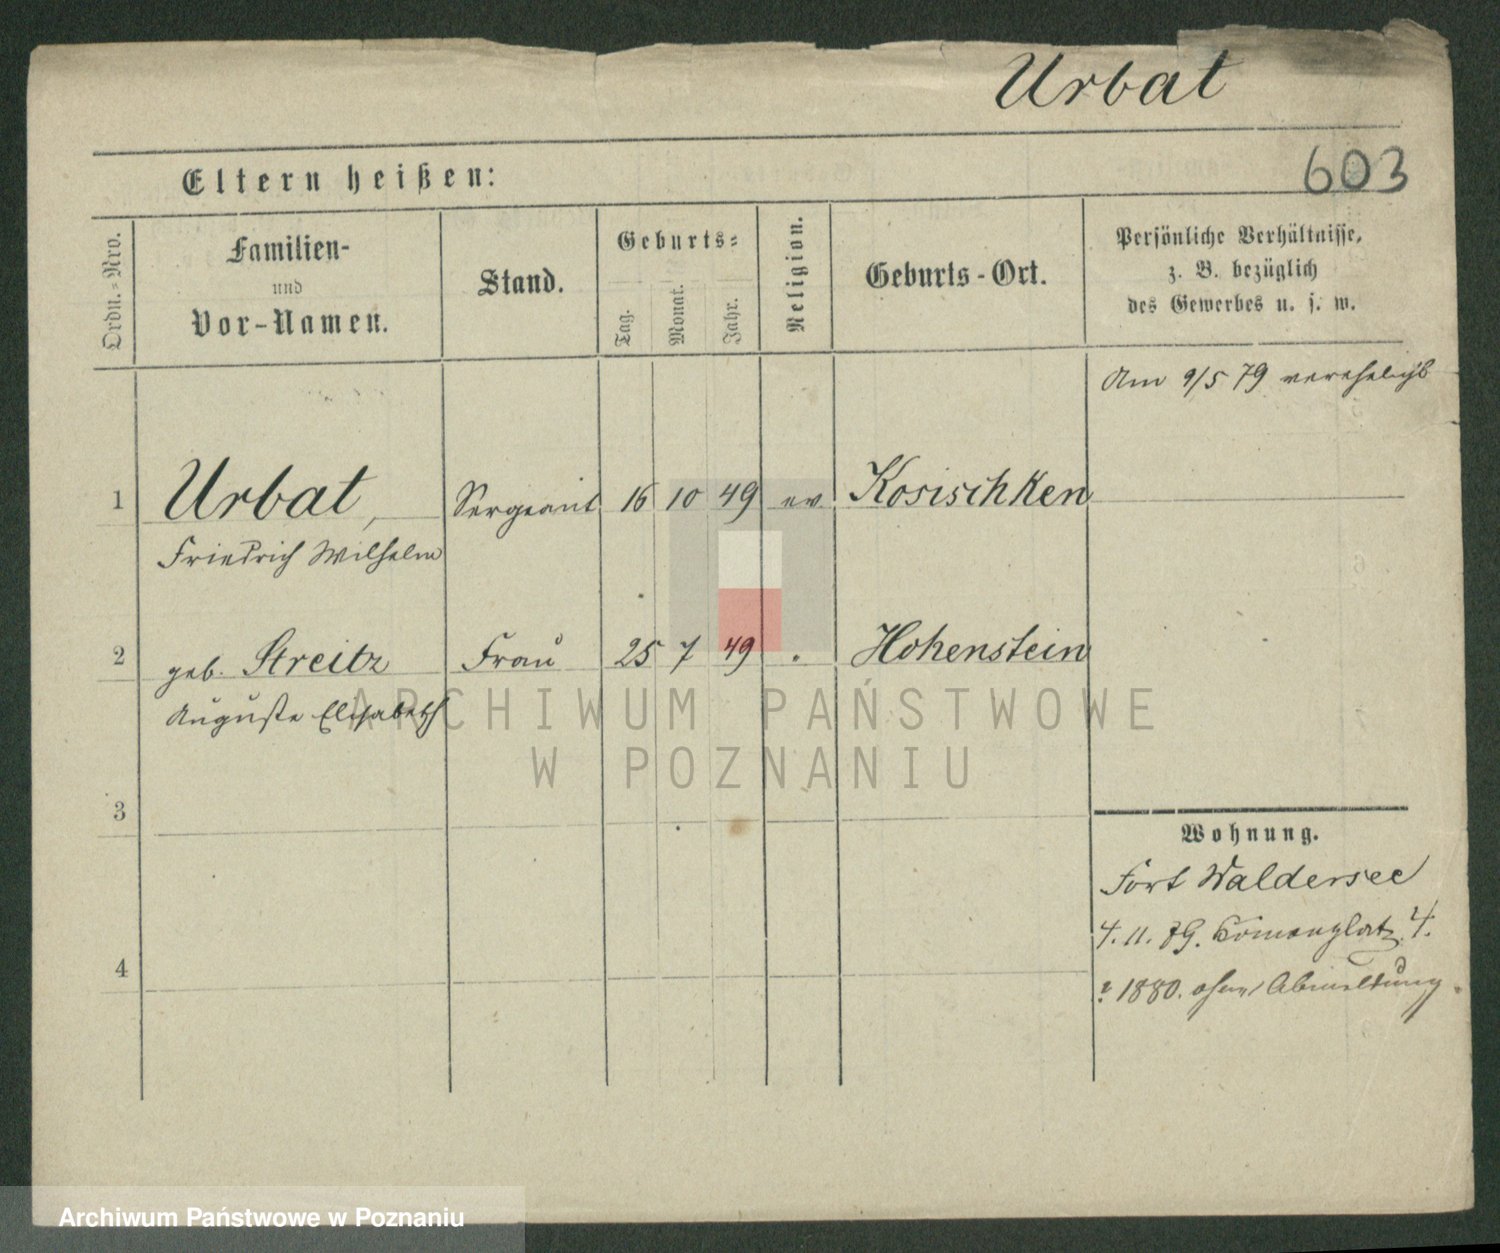 Urbat
603
Eltern heißen:
Ordn.=Nro.
Familien-
und
Vor-Namen.
Stand.
Geburts=
Tag.
Monat.
Jahr.
Religion.
Geburts-Ort.
Persönliche Verhältnisse,
z. B. bezüglich
des Gewerbes u. s. w.
Am 9/5 79 verehelicht
1 Urbat, Sergeant 16 10 49 ev Kosischken
Friedrich Wilhelm
2 geb. Streitz Frau 25 7 49 " Hohenstein
Auguste Elisabeth
ARCHIWUM PAŃSTWOWE
W POZNANIU
3
Wohnung.
Fort Waldersee
4. 11. 79. 4.
4
? 1880. ohne Abmeldung.
Archiwum Państwowe w Poznaniu